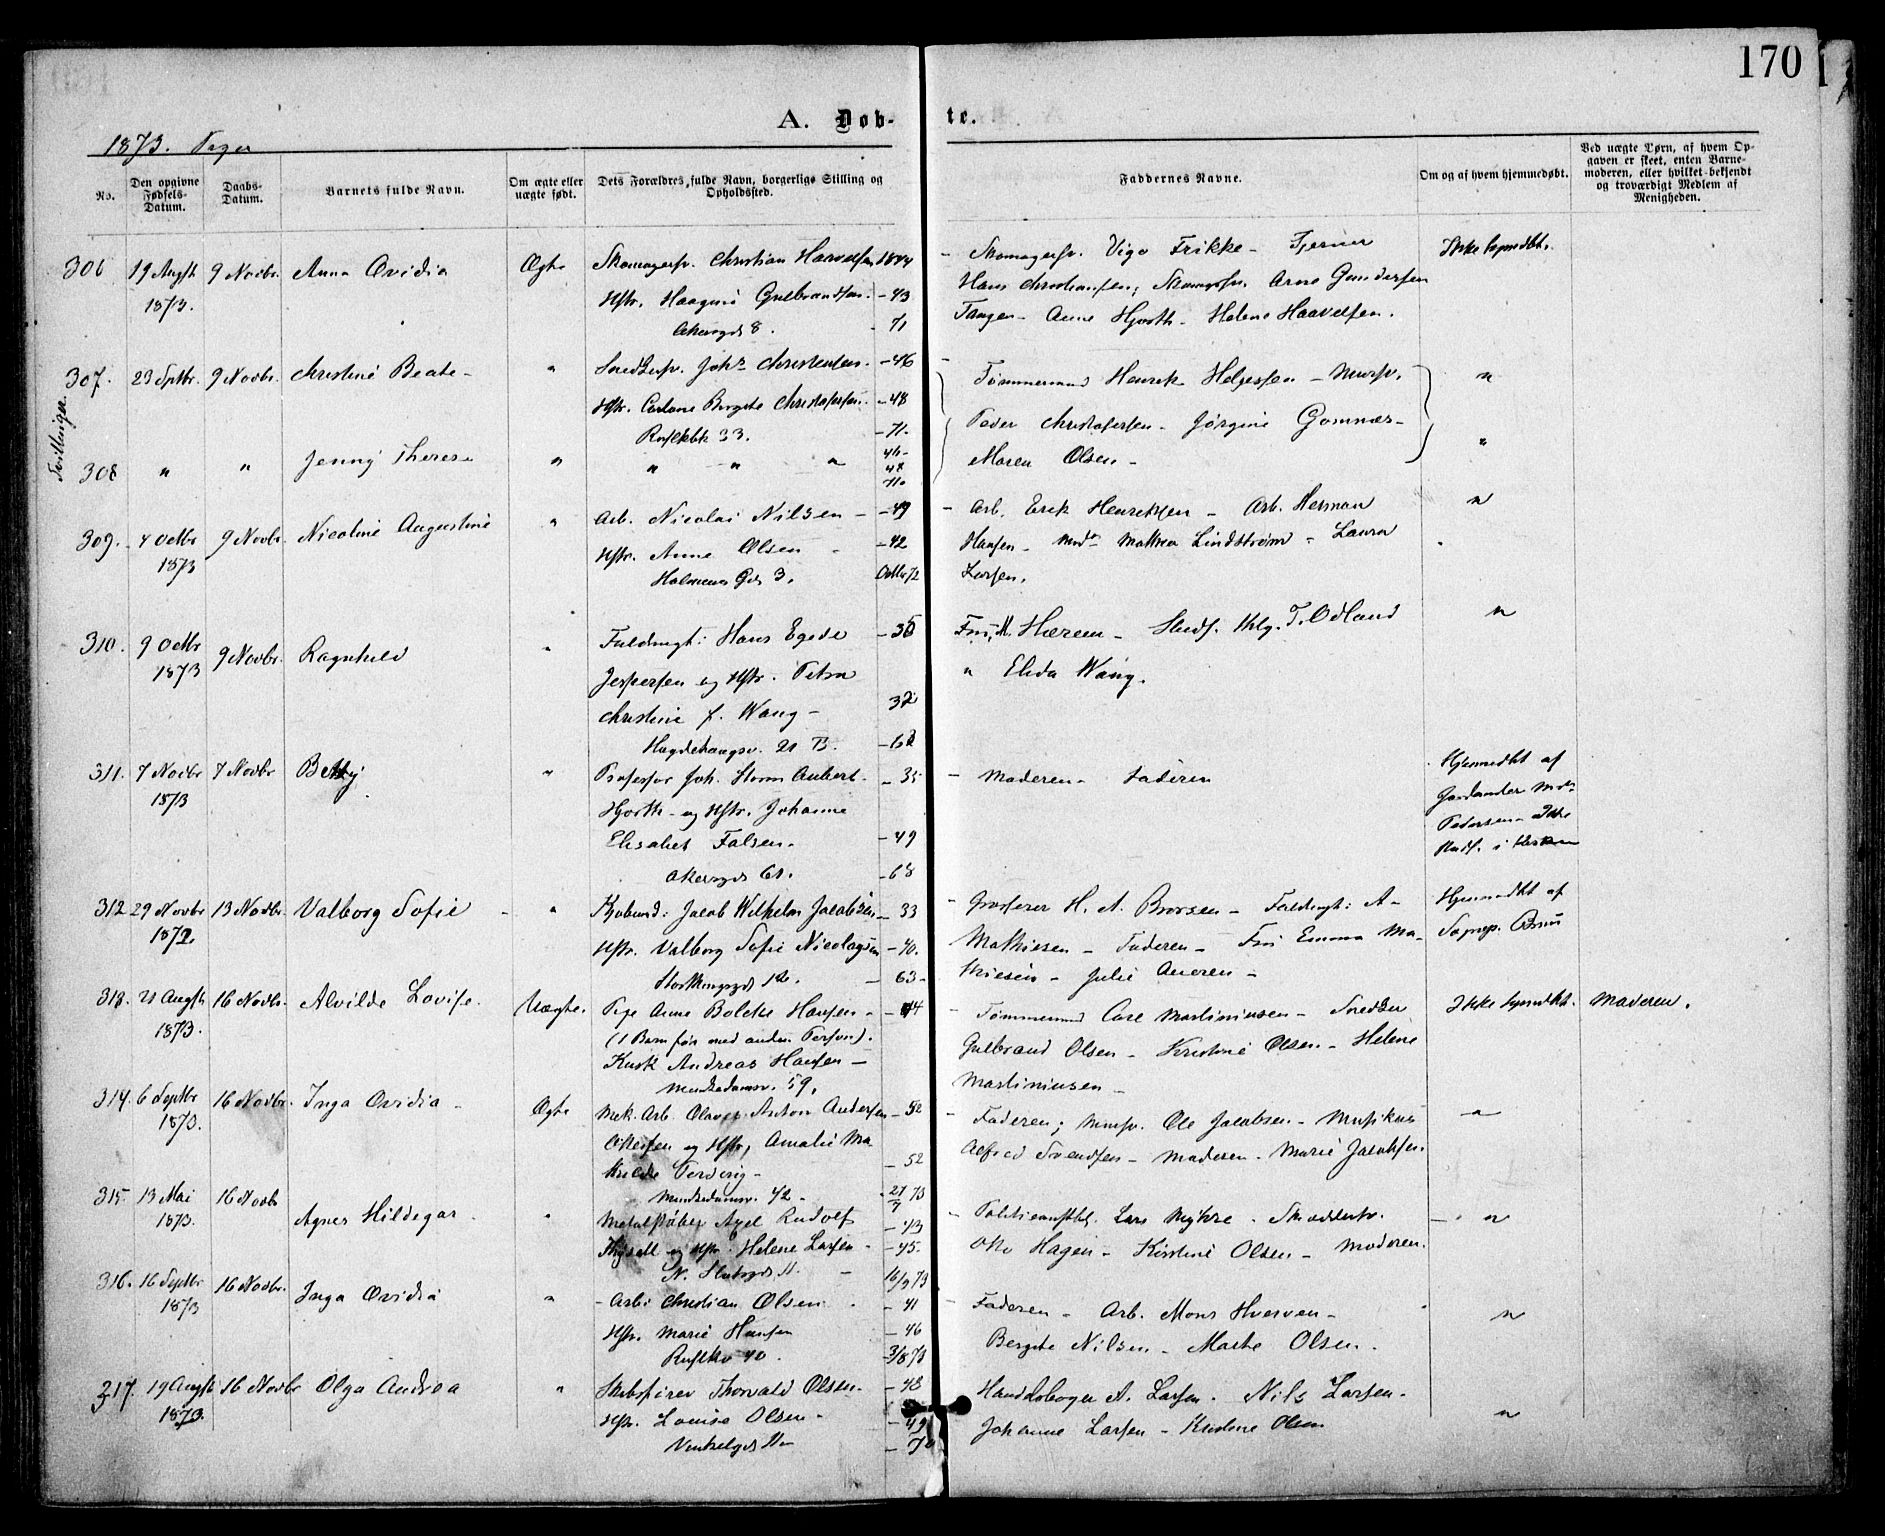 170
A. Døb-te.
1873. Piger
No.
Den opgivne Fødsels-Datum.
Daabs-Datum.
Barnets fulde Navn.
Om ægte eller uægte født.
Dets Forældres fulde Navn, borgerlige Stilling og Opholdssted.
Faddernes Navne.
Om og af hvem hjemmedøbt.
Ved uægte Børn, af hvem Op-gaven er skeet, enten Barne-moderen, eller hvilket bekjendt og troværdigt Medlem af Menigheden.
306 19 Augst 9 Novbr. Anna Ovidia Ægte Skomagersv. Christian Haavelsen 1844 - Skomagersv. Vigo Frikke - Ikke hjmdbt.
1873. Hstr. Haagine Gulbrandsen. - 43 Hans Christiansen; Arne Gundersen
Akersgd 8. - 71 Tangen - Anne Hjorth - Helene Haavelsen.
Tvillinger.
307. 23 Septbr. 9 Novbr. Christine Beate - " Snedkersv. Johs Christensen. - 46 Tømmermand Henrik Helgesen - Mursv. "
Hstr. Carlone Birgite Christofersen. - 48 Peder Christofersen - Jørgine Gomnæs -
33. - 71 - Maren Olsen -
308 " " Jenny Therese " " " " 46 - 48 71. "
309. 4 Octbr 9 Novbr. Nicoline Augustine " Arb. Nicolai Nilsen - - 49 - Arb. Erik Henriksen - Arb. Herman "
1873 Hstr. Anne Olsen - - 42 Hansen - Mathea Lindstrøm - Laura
Holmens Gd 3. Octbr 72 Larsen.
310. 9 Octbr 9 Novbr. Ragnhild " Fuldmgt: Hans Egede - 36 Hærem - Stud. T. Odland "
1873 Jespersen og Hstr. Petra " Elida Wang.
Christine f. Wang - 32
Hægdehaugsv. 21 B.
311. 7 Novbr 7 Novbr Betty " Professor Joh. Storm Aubert - 35 - Moderen - Faderen Hjemmedbt af
1873 Hjorth - og Hstr. Johanne Pedersen - Ikke
Elisabet Falsen. - 49 i Kirken
Akersgd 61. - 68
312 29 Novbr 13 Novbr. Valborg Sofie - " Kjøbmd: Jacob Wilhelm Jacobsen - 33 - Grosserer H. A. Brorsen - Fuldmgt: A - Hjemmedbt af
1872. Hstr. Valborg Sofie Nicolaysen - 40. Mathiesen - Faderen - Emma Ma- Sognep. Bruun
Storthingsgd 12. - 63 - thiesen - Julie -
313. 21 Augst 16 Novbr. Alvilde Lovise. Uægte. Pige Anne Bolette Hansen - - 44 - Tømmermand Carl Martiniusen - Snedker Ikke hjmdbt. Moderen.
1873. (1 Barn før med anden Person). Gulbrand Olsen - Kristine Olsen - Helene
Kusk Andreas Hansen - Martiniusen -
Munkedamsv. 59,
314. 6 Septbr 16 Novbr. Inga Ovidia - Ægte Mek. Arb. Anton Andersen - 52 - Faderen; Mursv. Ole Jacobsen - Musikus "
1873. og Hstr, Amalie Ma- Alfred Svendsen - Moderen - Marie Jacobsen.
thilde - 52
Munkedamsv. 42 - 27/7 73
315. 13 Mai 16 Novbr Agnes Hildegar. " Metalstøber Axel Rudolf - 43 - Politiconstbl. Lars Myhre - "
1873. og Hstr Helene Larsen - - 45 - Otto Hagen - Kirstine Olsen - Moderen.
N. Slotsgd 11. - 16/9 73
316. 16 Septbr 16 Novbr. Inga Ovidia " - Arb: Christian Olsen - 41 - Faderen - Arb. Mons Hverven - "
1873 Hstr. Marie Hansen - 46 Bergite Nilsen - Marte Olsen.
40. 3/8 73
317. 19 Augst 16 Novbr Olga Andrea " Skibsfører Thorvald Olsen. - 48 A. Larsen. Nils Larsen -
1873. Hstr. Lovise Olsen - - 49 Johanne Larsen - Kristine Olsen "
11 -